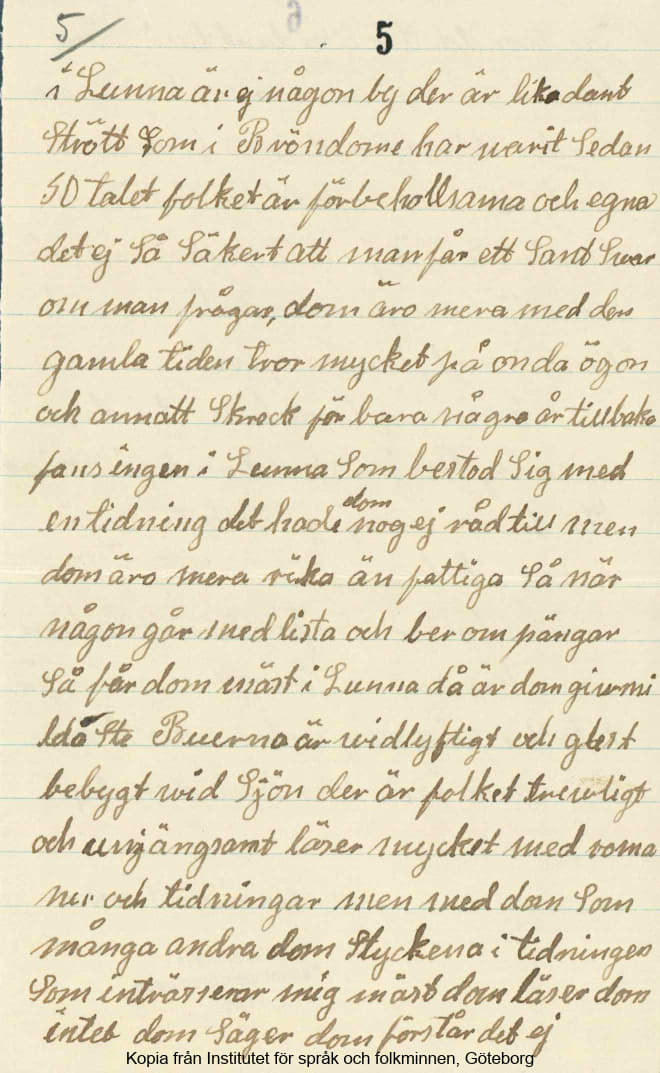 5
5
i Lunna är ej någon by der är likadant
Strött Som i Bröndome har varit Sedan
50 talet folket är förbehollsama och egna
det ej Så Säkert att man får ett Sant Svar
om man frågar, dom äro mera med den
gamla tiden tror mycket på onda ögon
och annatt Skrock för bara några år tillbaka
fans ingen i Lunna Som bestod Sig med
en tidning det hade dom nog ej råd till men
dom äro mera rika än fattiga Så när
någon går med lista och ber om pängar
Så får dom mäst i Lunna då är dom givmi
ldaste Buerna är widlyftigt och glest
bebygt wid Sjön der är folket trewligt
och umjängsamt läser mycket med roma
ner och tidningar men med dom Som
många andra dom Styckena i tidningen
Som inträsserar mig mäst dom läser dom
intet dom Säger dom förstår det ej
Kopia från Institutet för språk och folkminnen, Göteborg